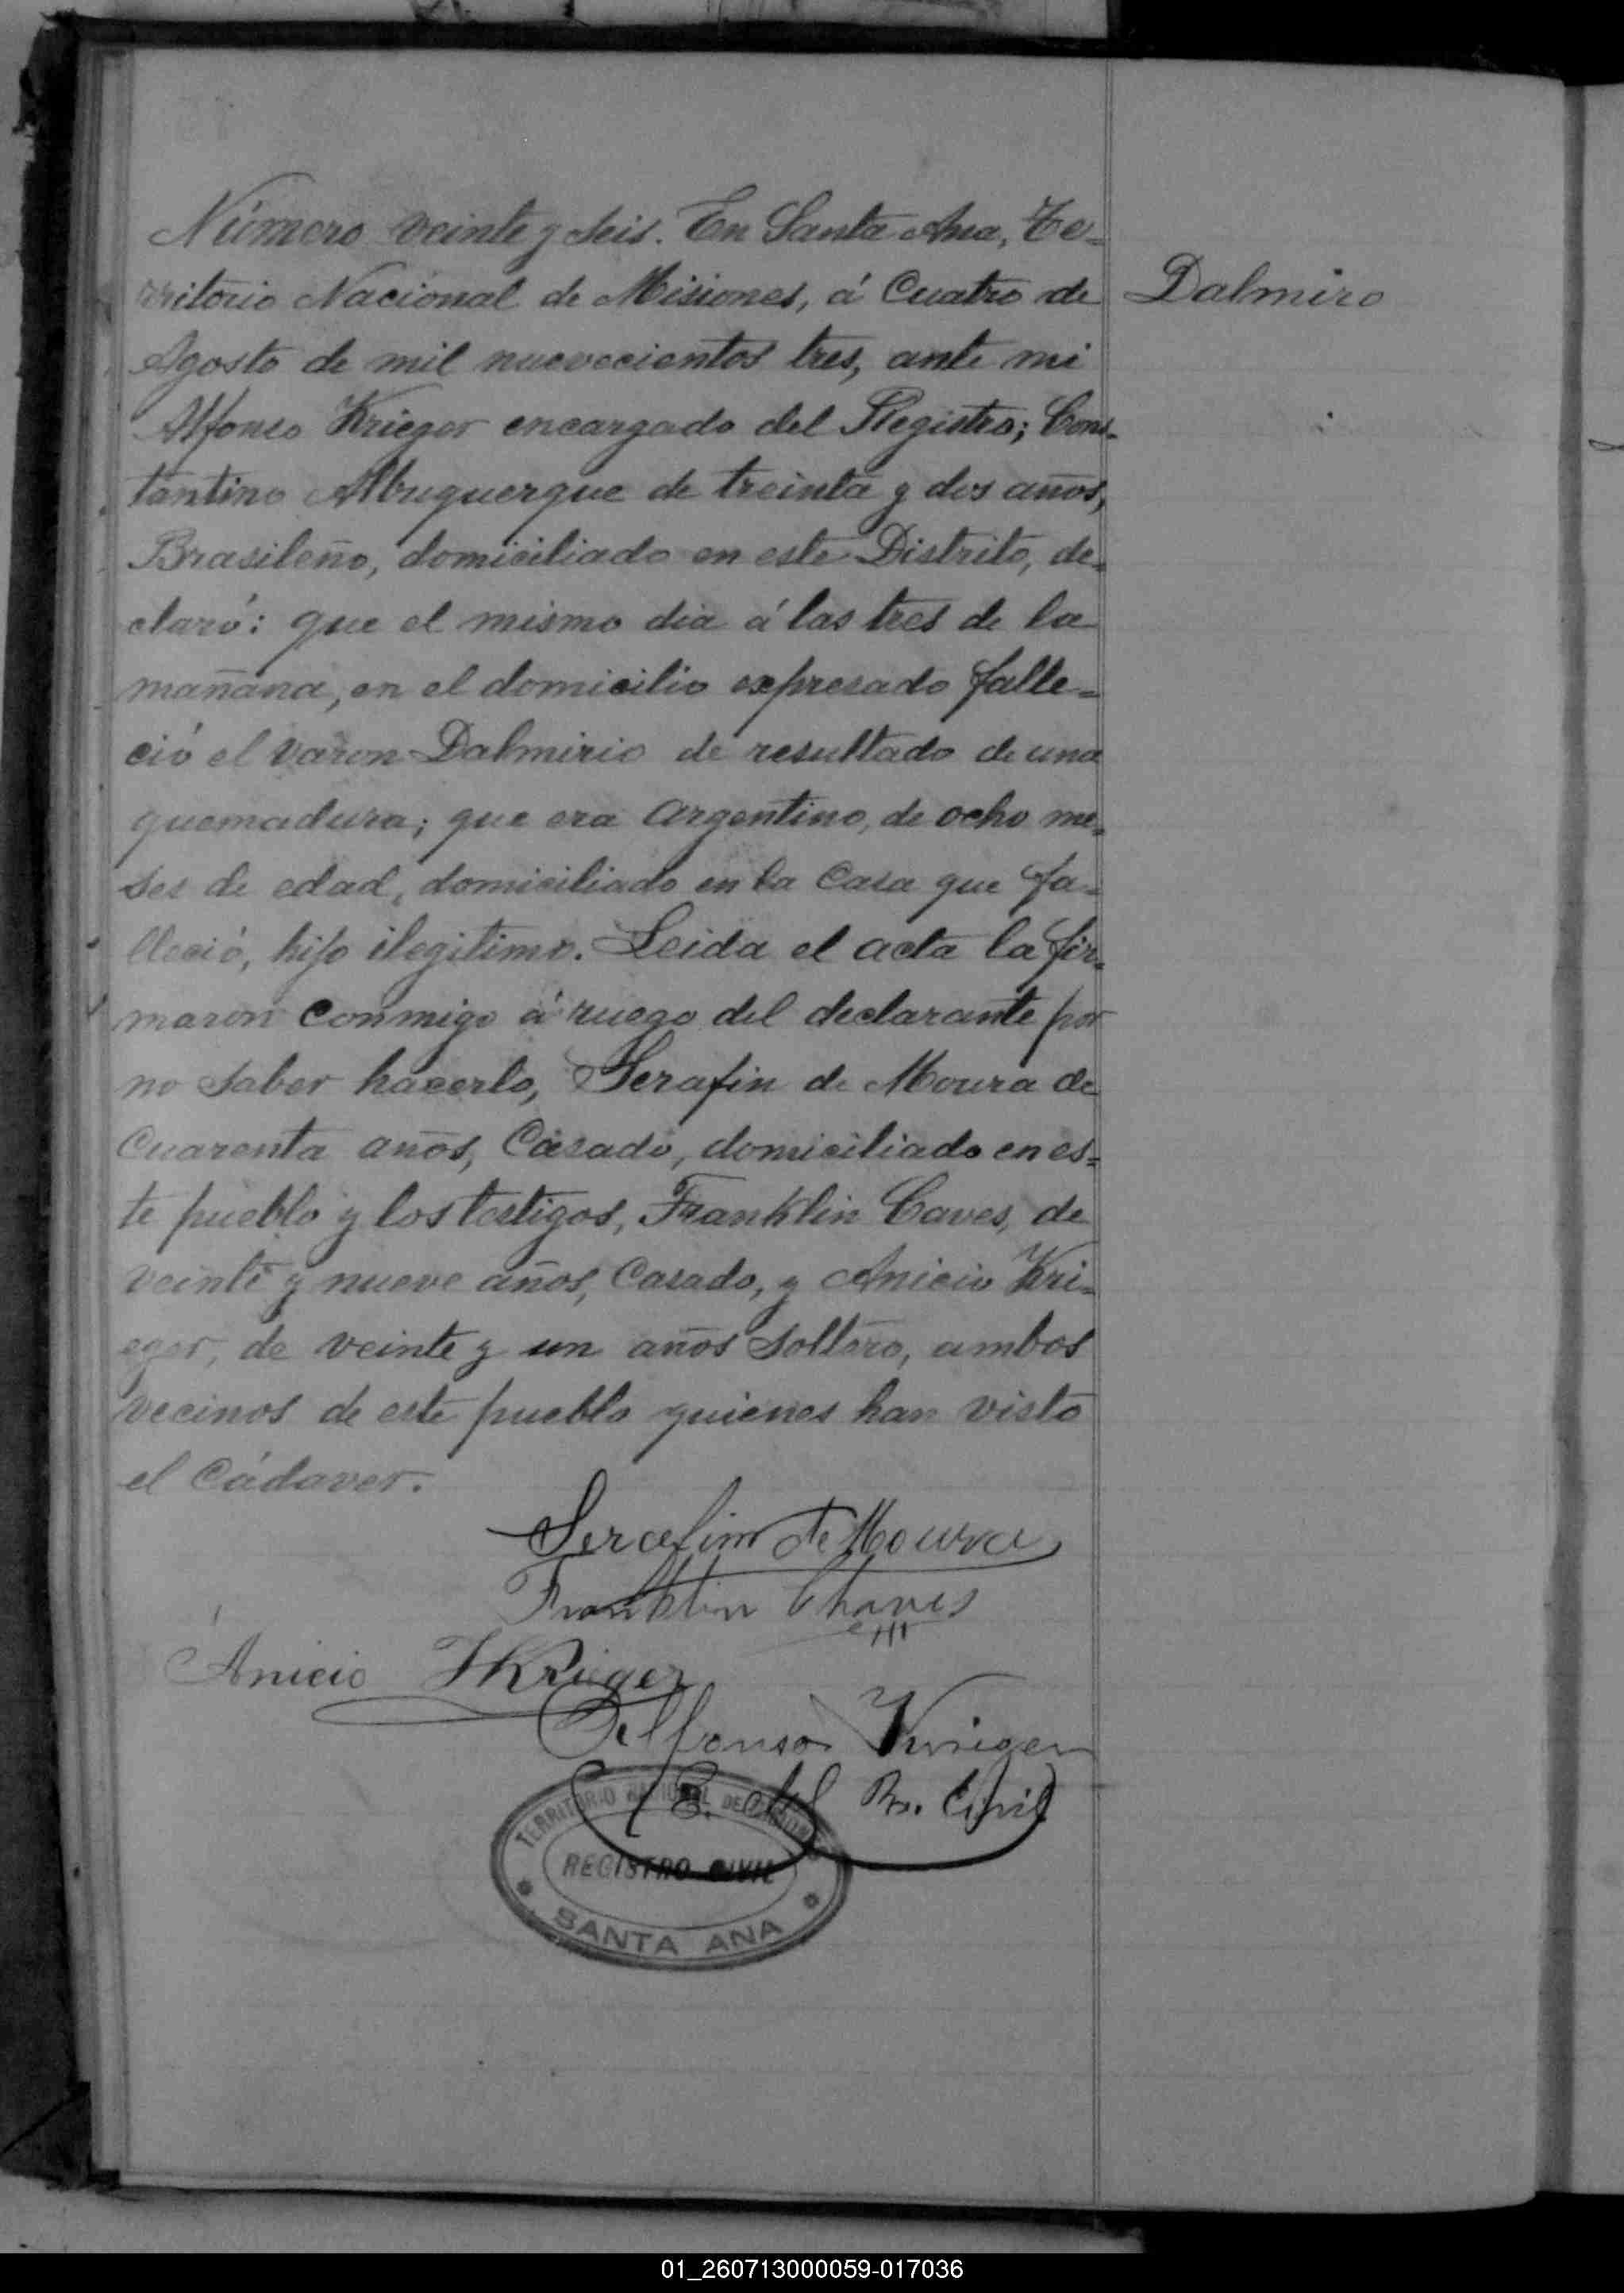 Número veinte y seis. En Santa Ana, Te=
rritorio Nacional de Misiones, á Cuatro de
Dalmiro
Agosto de mil nuevecientos tres, ante mi
Alfonso Krieger encargado del Registro; Cons=
tantino Albuquerque de treinta y dos años,
Brasileño, domiciliado en este Distrito, de=
claró: que el mismo dia á las tres de la
mañana, en el domicilio expresado falle=
ció el varon Dalmirio de resultado de una
quemadura; que era Argentino, de ocho me=
ses de edad, domiciliado en la Casa que fa=
lleció, hijo ilegitimo. Leida el acta la fir=
maron Conmigo á ruego del declarante por
no saber hacerlo, Serafin de Moura de
Cuarenta años, Casado, domiciliado en es=
te pueblo y los testigos, Franklin Caves, de
veinte y nueve años, Casado, y Anicio Kri=
eger, de veinte y un años Soltero, ambos
vecinos de este pueblo quienes han visto
el Cádaver.
Serafim de Moura
Franklin Chaves
Anicio Krieger
Alfonso Krieger
E. del Rº. Civil
TERRITORIO NACIONAL DE MISIONES
REGISTRO CIVIL
SANTA ANA
01_260713000059-017036